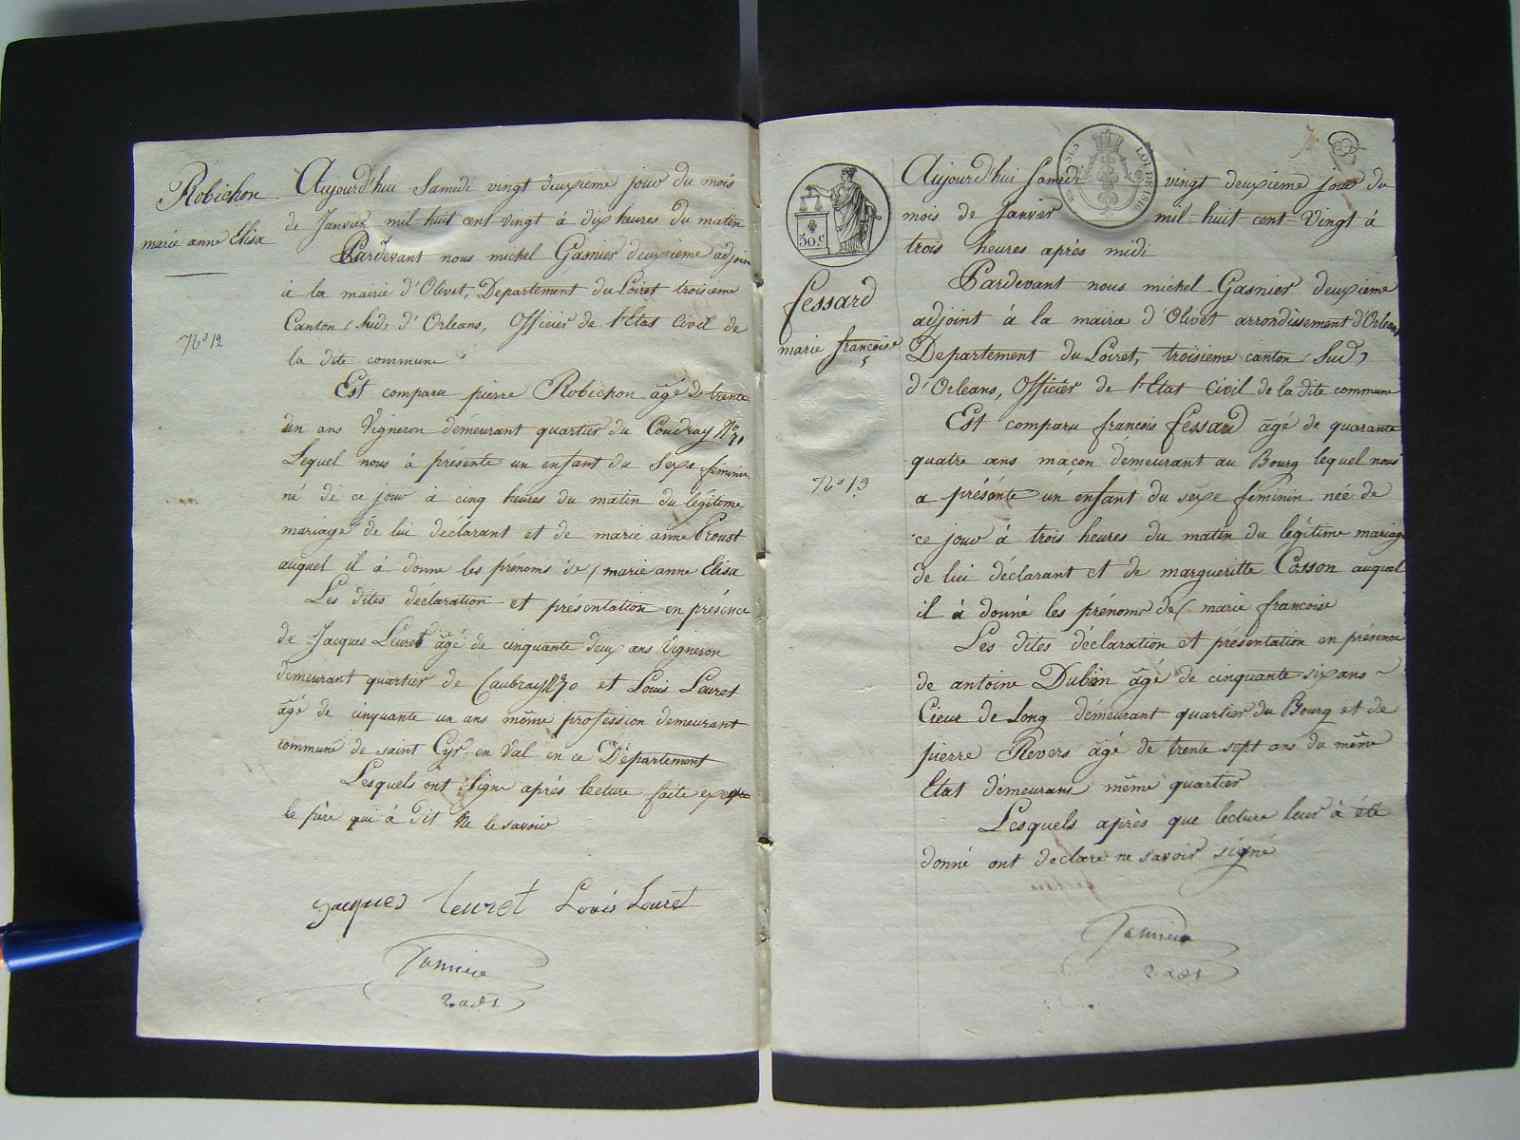 Robichon
marie anne Elisa
No 12
Aujourd'hui Samedi vingt deuxieme jour du mois
de Janvier mil huit cent vingt à dix heures du matin
Pardevant nous michel Gasnier deuxieme adjoin
à la mairie d'Olivet, Departement du Loiret troisieme
Canton (Sud) d'Orleans, Officier de l'Etat Civil de
la dite commune
Est comparu pierre Robichon agé de trente
un ans Vigneron démeurant quartier du Coudray
Lequel nous à présenté un enfant du Sexe féminin
né de ce jour à cinq heures du matin du légitime
mariage de lui déclarant et de marie anne Proust
auquel il à donné les prénoms de (marie anne Elisa
Les dites déclaration et présentation en présence
de Jacques Leuret âgé de cinquante deux ans Vigneron
demeurant quartier de et Louis Louret
âgé de cinquante un ans même profession demeurant
commune de saint Cyr en Val en ce Département
Lesquels ont Signé après lecture faite
le père qui à dit ne le savoir
Jacques Leuret Louis Louret
30 c
fessard
marie francoise
No 13
Aujourd'hui Samedi vingt deuxieme jour du
mois de Janvier mil huit cent vingt à
trois heures après midi
Pardevant nous michel Gasnier deuxieme
adjoint à la mairie d'Olivet arrondissement d'Orleans
Departement du Loiret, troisieme canton (Sud)
d'Orleans, Officier de l'Etat Civil de la dite commune
Est comparu francois fessard âgé de quarante
quatre ans maçon démeurant au Bourg lequel nous
a présenté un enfant du sexe féminin née de
ce jour à trois heures du matin du légitime mariage
de lui déclarant et de margueritte Cosson auquel
il à donné les prénoms de (marie francoise
Les dites déclaration et présentation en présence
de antoine Dubin âgé de cinquante six ans
Cieur de Long démeurant quartier du Bourg et de
pierre Revers âgé de trente sept ans du même
Etat démeurans même quartier
Lesquels après que lecture leur à été
donné ont declaré ne savoir signé